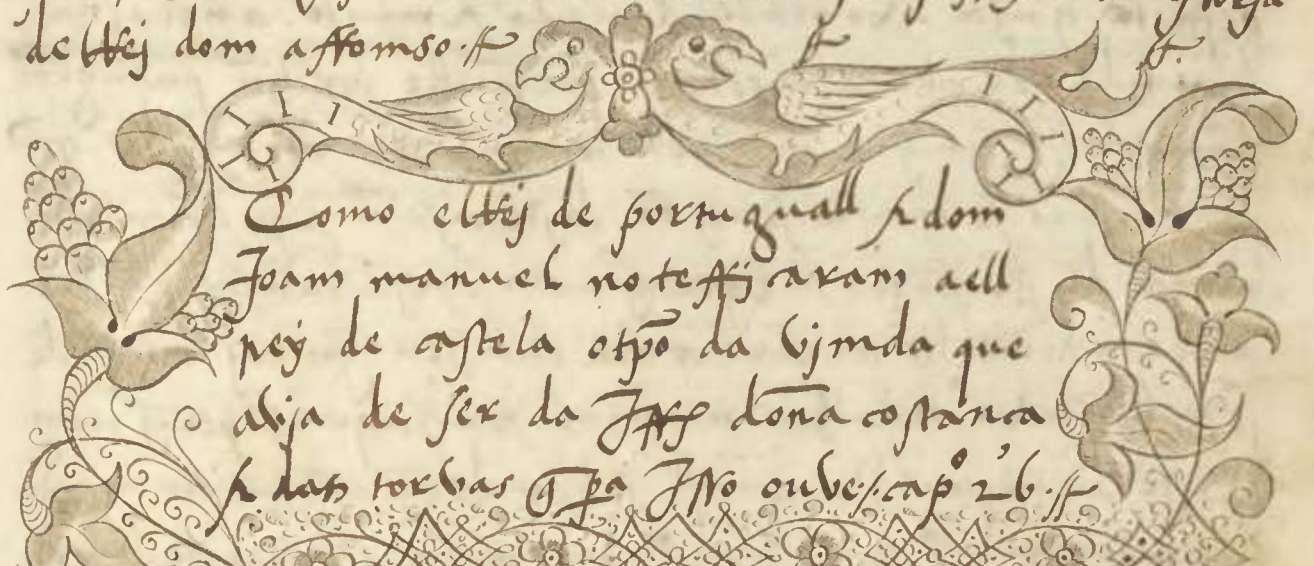 delRej dom affomso
Como elRej de portuguall & dom
Joam manuel noteffjcaram a ell
Rey de castela o tpõ da vjmda que
avja de ser da Iffª dona costanca
& das torvas q̃ pera Isso ouve /. capº 26